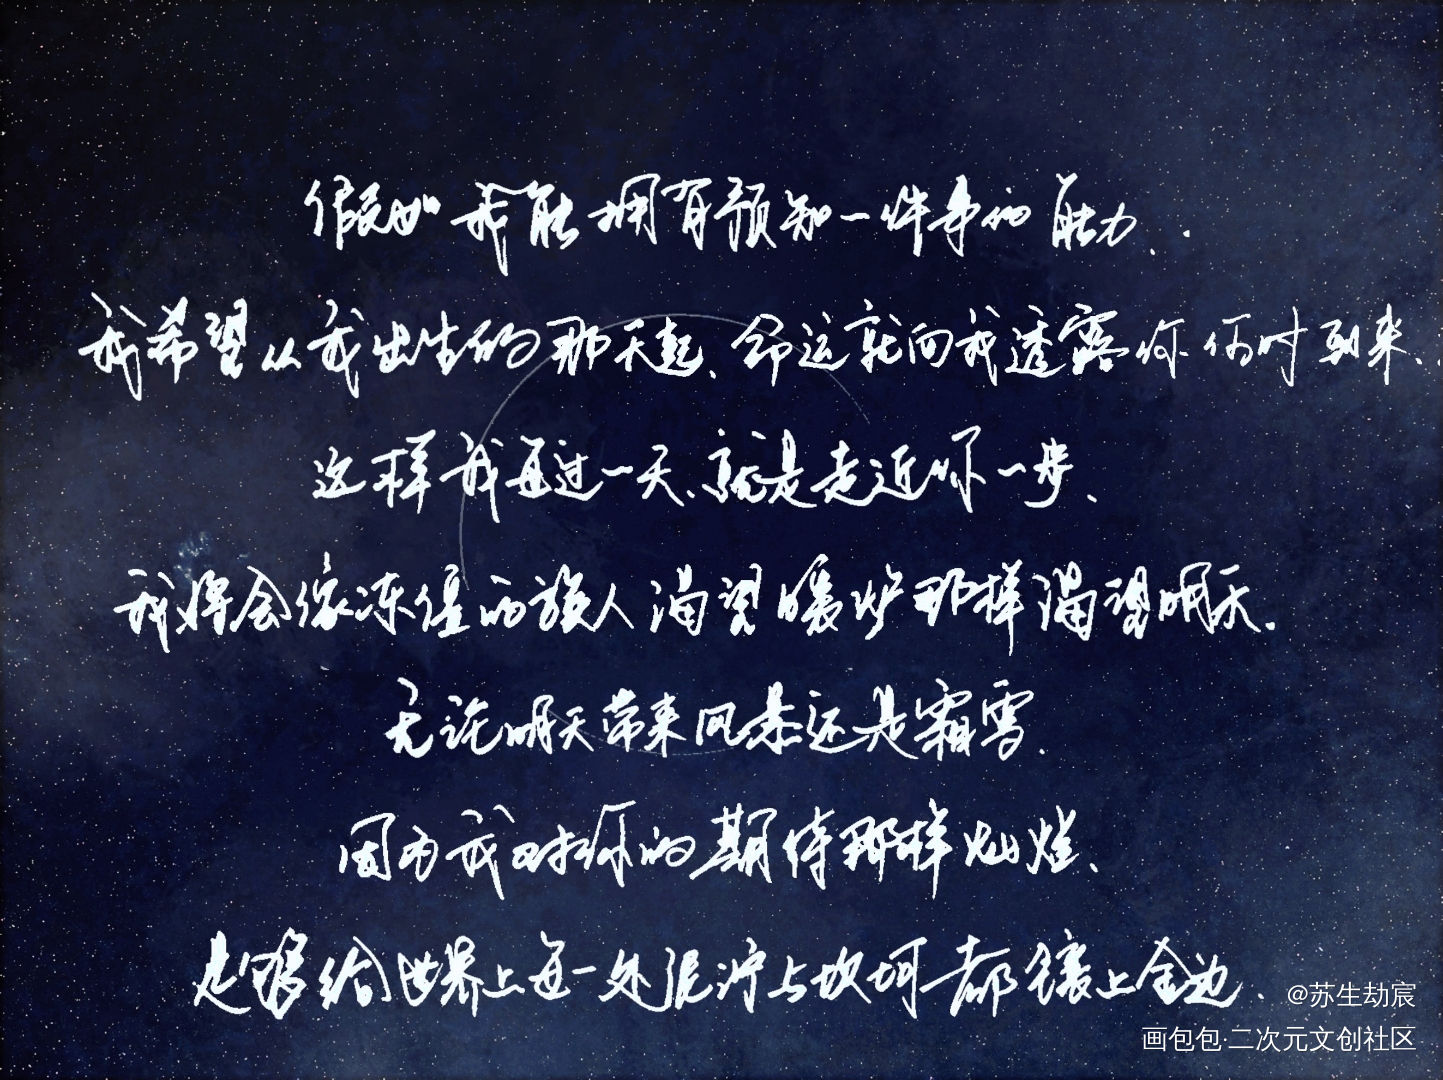 假如我能拥有预知一件事的能力,.
我希望从我出生的那天起,命运就向我透露你何时到来,
这样我每过一天,就是走近你一步,
我将会像冻僵的旅人渴望暖炉那样渴望明天.
无论明天带来风暴还是霜雪,
因为我对你的期待那样灿烂,
足够给世界上每一处泥泞与坎坷都镶上金边.
@苏生劫宸
画包包·二次元文创社区